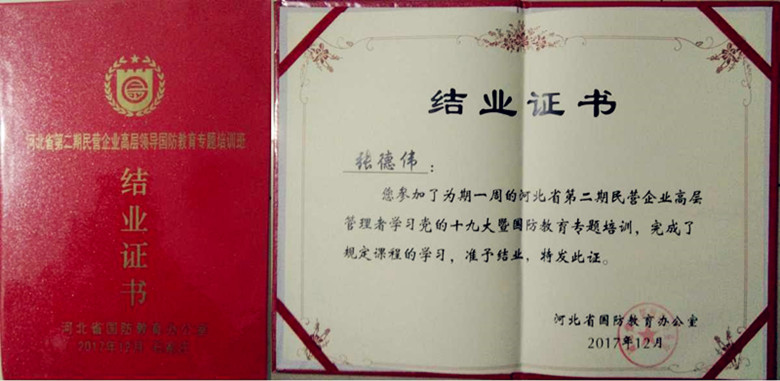 河北省第二期民营企业高层领导国防教育专题培训班
结业证书
河北省国防教育办公室
2017年12月
结业证书
张德伟：
您参加了为期一周的河北省第二期民营企业高层
管理者学习党的十九大暨国防教育专题培训，完成了
规定课程的学习，准予结业，特发此证。
河北省国防教育办公室
2017年12月